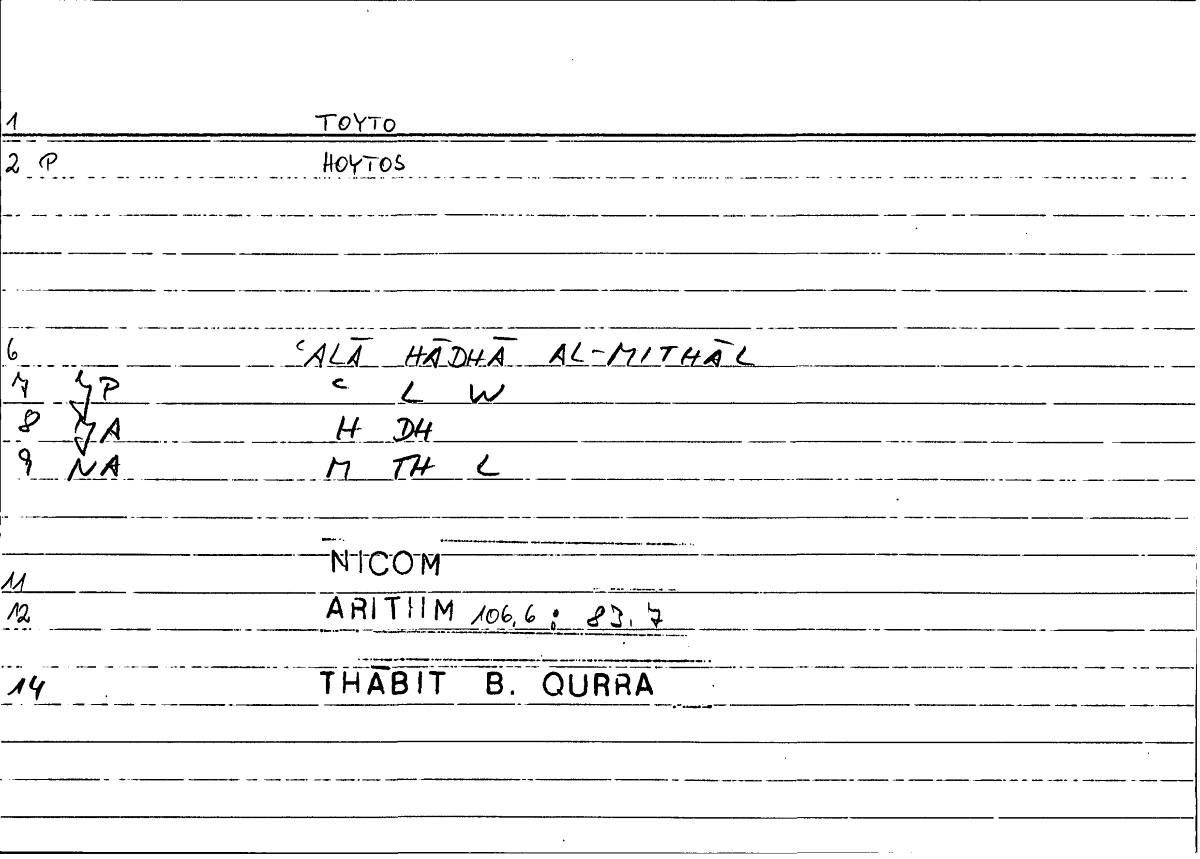 1 TOYTO
2 P HOYTOS
6 ʿALĀ HĀDHĀ AL-MITHĀL
7 P ʿ L W
8 A H DH
9 NA M TH L
NICOM
11
12 ARITHM 106,6 : 83,7
14 THĀBIT B. QURRA